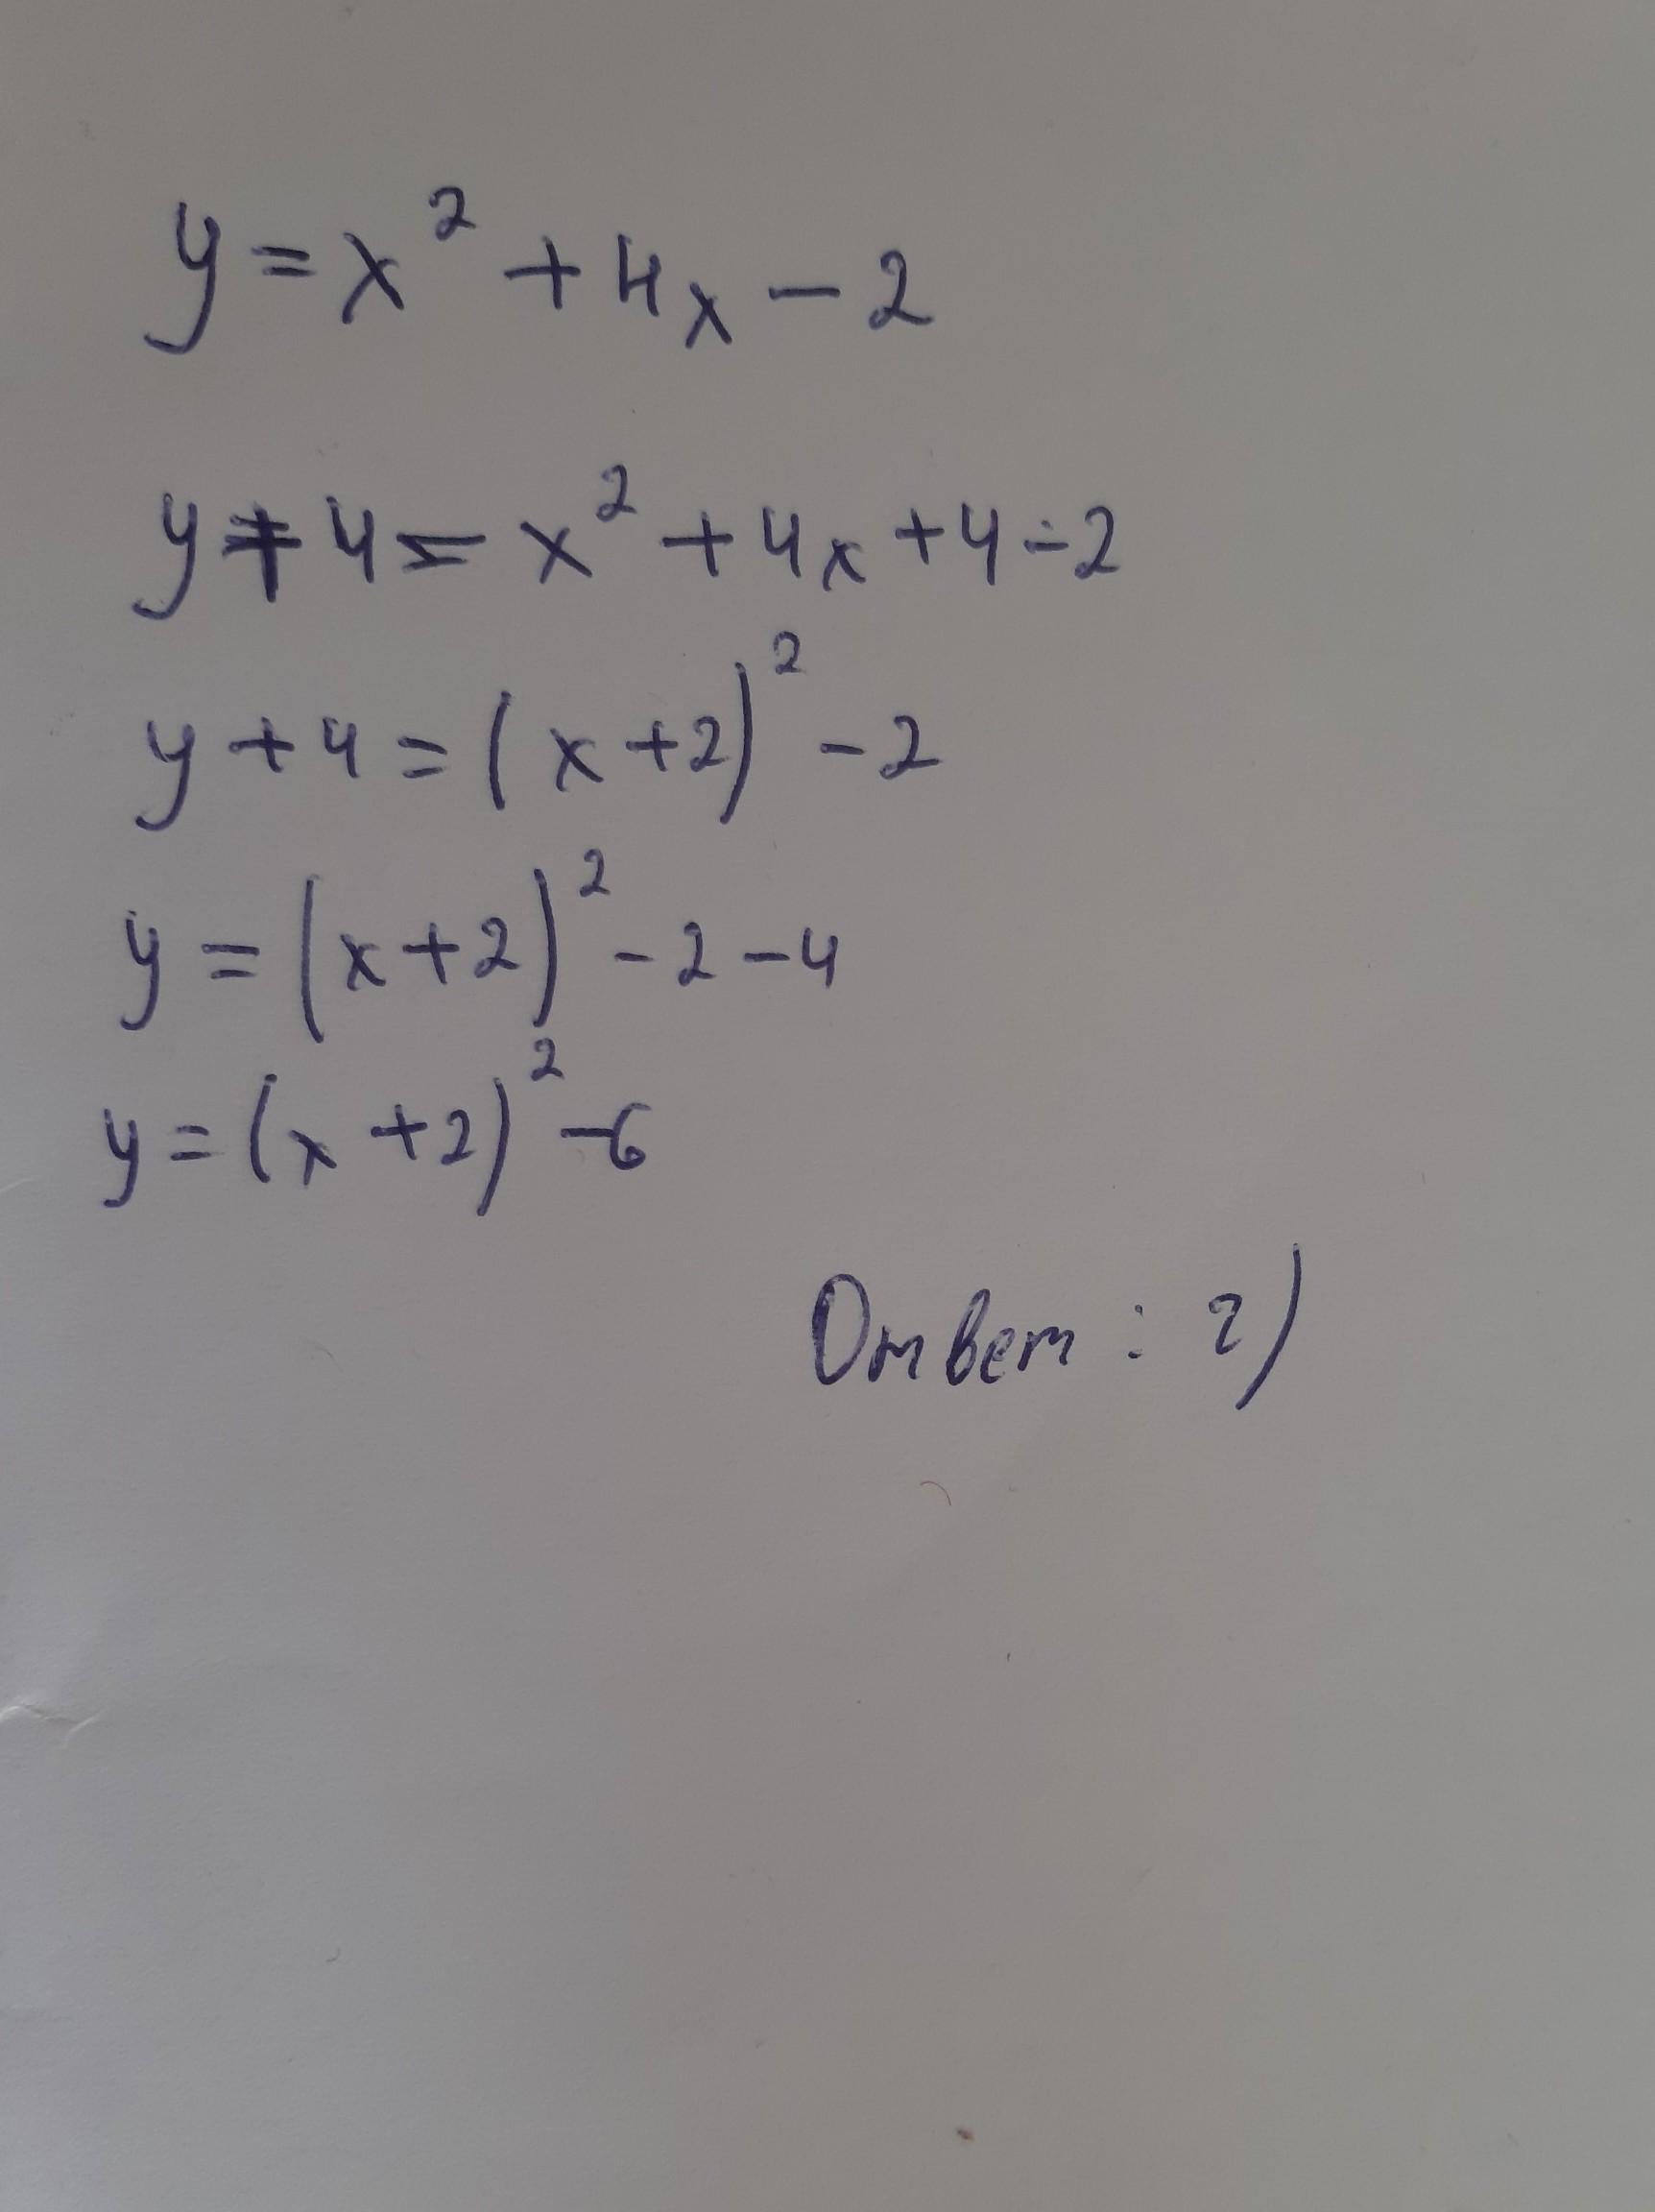 y = x² + 4x - 2
y + 4 = x² + 4x + 4 - 2
y + 4 = (x + 2)² - 2
y = (x + 2)² - 2 - 4
y = (x + 2)² - 6
Ответ : г)